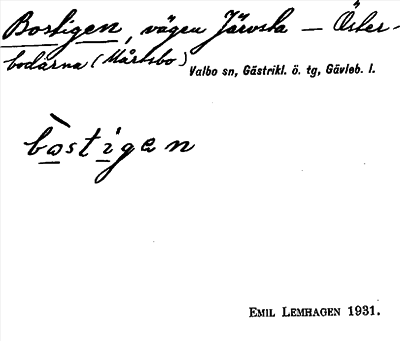 Bostigen, vägen Järvsta – Öster-
bodarna (Mårtsbo)
Valbo sn, Gästrikl. ö. tg, Gävleb. l.
bòstigen
EMIL LEMHAGEN 1931.